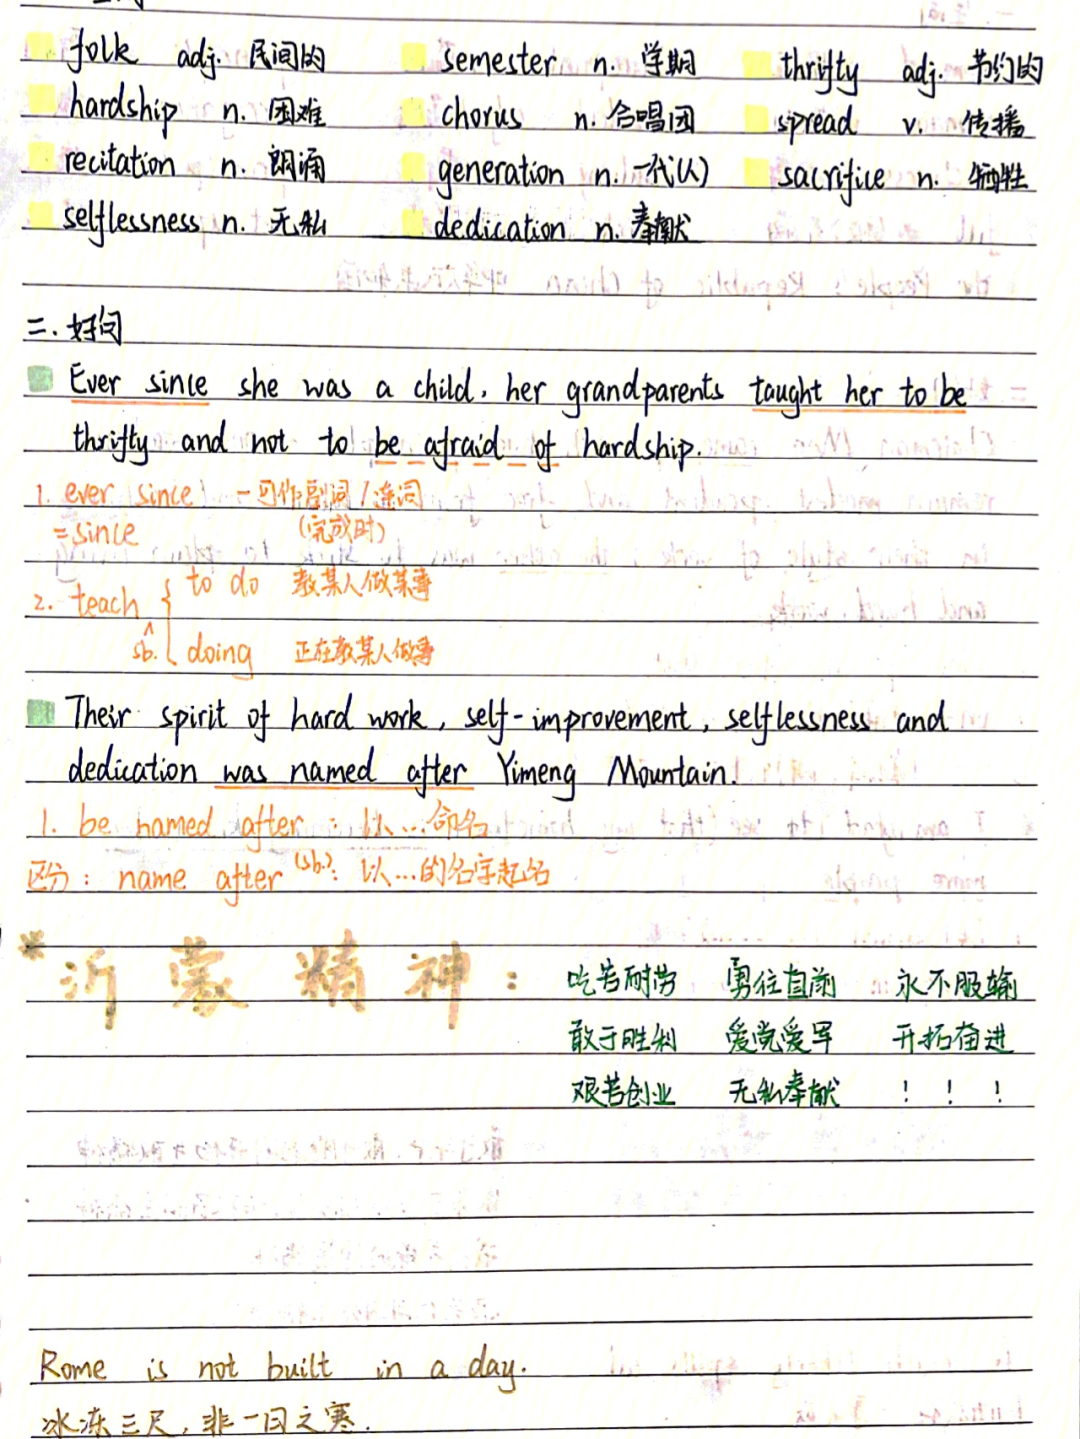 folk adj. 民间的 semester n. 学期 thrifty adj. 节约的
hardship n. 困难 chorus n. 合唱团 spread v. 传播
recitation n. 朗诵 generation n. 一代(人) sacrifice n. 牺牲
selflessness n. 无私 dedication n. 奉献
三. 好句
Ever since she was a child, her grandparents taught her to be
thrifty and not to be afraid of hardship.
1. ever since — 可作副词/连词
=since (完成时)
2. teach sb. { to do 教某人做某事
doing 正在教某人做事
Their spirit of hard work, self-improvement, selflessness and
dedication was named after Yimeng Mountain.
1. be named after : 以...命名
区分: name after (sb.): 以...的名字起名
*沂蒙精神: 吃苦耐劳 勇往直前 永不服输
敢于胜利 爱党爱军 开拓奋进
艰苦创业 无私奉献 ! ! !
Rome is not built in a day.
冰冻三尺,非一日之寒.